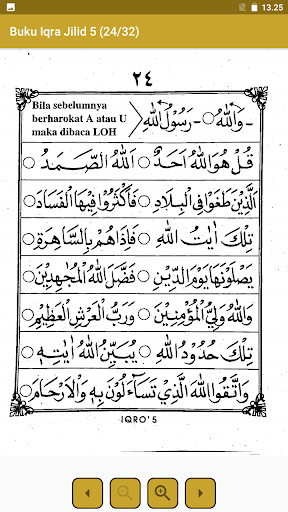 13.25
Buku Iqra Jilid 5 (24/32)
٢٤
Bila sebelumnya
berharokat A atau U
maka dibaca LOH
- وَاللهُ ○ - رَسُوْلُ اللهِ
قُلْ هُوَ اللهُ اَحَدٌ ○ اَللهُ الصَّمَدُ ○
اَلَّذِيْنَ طَغَوْا فِى الْبِلَادِ ○ فَاَكْثَرُوْا فِيْهَا الْفَسَادَ
تِلْكَ اٰيٰتُ اللهِ ○ فَاِذَاهُمْ بِالسَّاهِرَةِ
يَصْلَوْنَهَا يَوْمَ الدِّيْنِ ○ فَضَّلَ اللهُ الْمُجٰهِدِيْنَ
وَاللهُ وَلِيُّ الْمُؤْمِنِيْنَ ○ وَرَبُّ الْعَرْشِ الْعَظِيْمِ
تِلْكَ حُدُوْدُ اللهِ ○ يُبَيِّنُ اللهُ اٰيٰتِهٖ ○
وَاتَّقُوا اللهَ الَّذِيْ تَسَآءَلُوْنَ بِهٖ وَالْاَرْحَامَ
IQRO'5